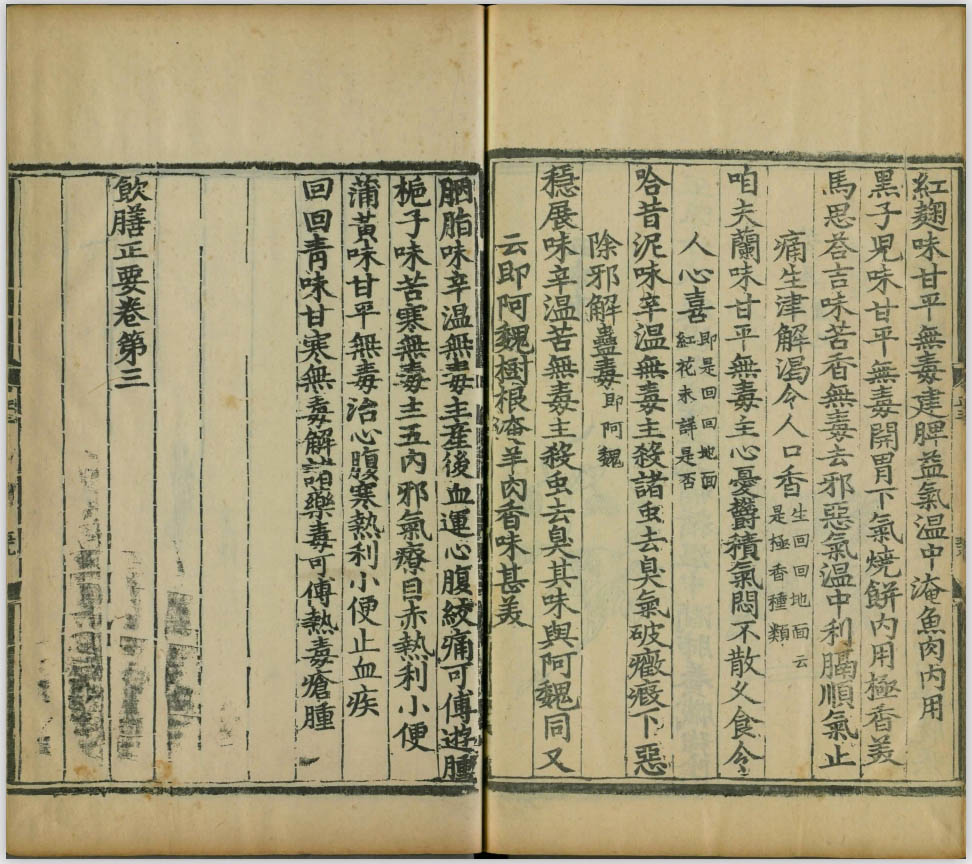 紅麴味甘平無毒建脾益氣温中淹魚肉内用
黑子兒味甘平無毒開胃下氣燒餅内用極香美
馬思荅吉味苦香無毒去邪惡氣温中利膈順氣止
痛生津解渴令人口香生回回地面云
是極香種類
咱夫蘭味甘平無毒主心憂鬱積氣悶不散乆食令
人心喜即是回回地面
紅花未詳是否
哈昔泥味辛温無毒主殺諸虫去臭氣破癥瘕下惡
除邪解蠱毒即阿魏
穩展味辛温苦無毒主殺虫去臭其味與阿魏同又
云即阿魏樹根淹羊肉香味甚美
胭脂味辛温無毒主産後血運心腹絞痛可傅遊腫
梔子味苦寒無毒主五内邪氣療目赤熱利小便
蒲黄味甘平無毒治心腹寒熱利小便止血疾
回回青味甘寒無毒解諸藥毒可傅熱毒瘡腫
飲膳正要卷第三